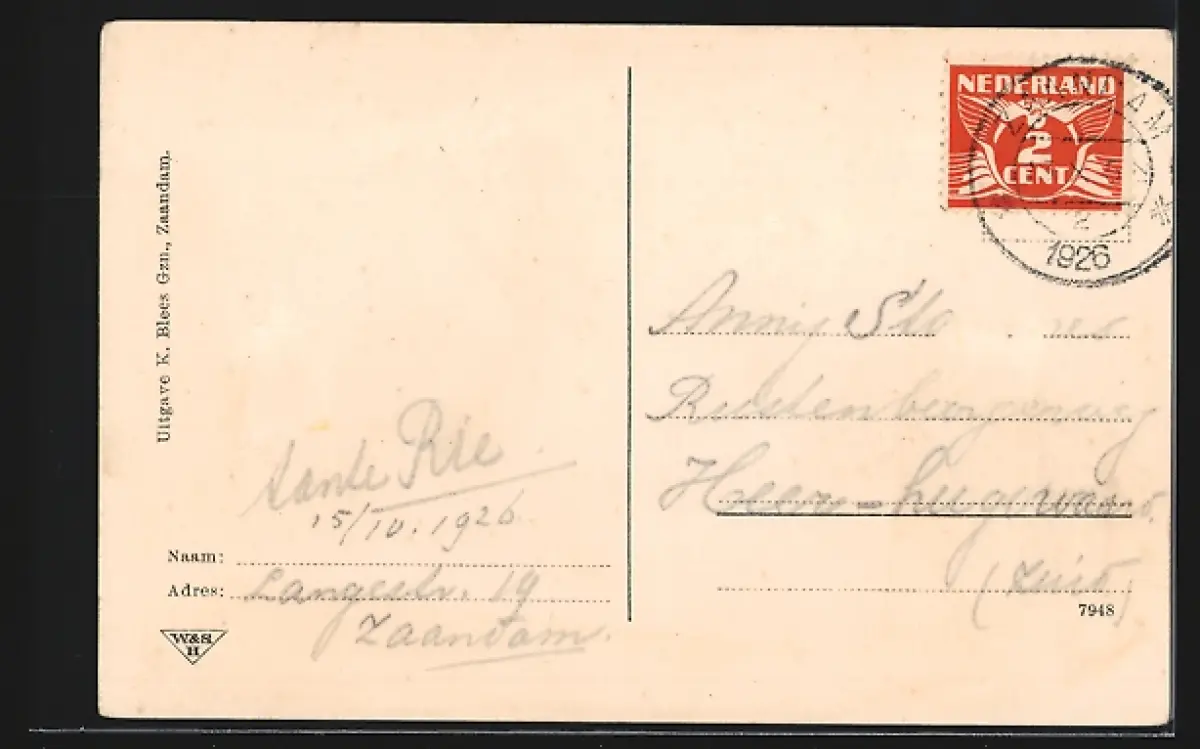 Uitgave K. Blees Gzn., Zaandam.
NEDERLAND
2
CENT
1926
Annie
Heer-Hugowaard.
(Zuid)
7948
tante Rie
15/10.1926
Naam:
Adres: Langestr. 19
Zaandam.
W&S
H